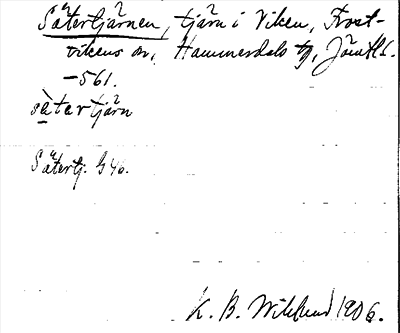 Sätertjärnen, tjärn i Viken, Frost-
vikens sn, Hammerdals tg, Jämtl.
-561.
sètertjärn
Sätertj. G 46.
K. B. Wiklund 1906.